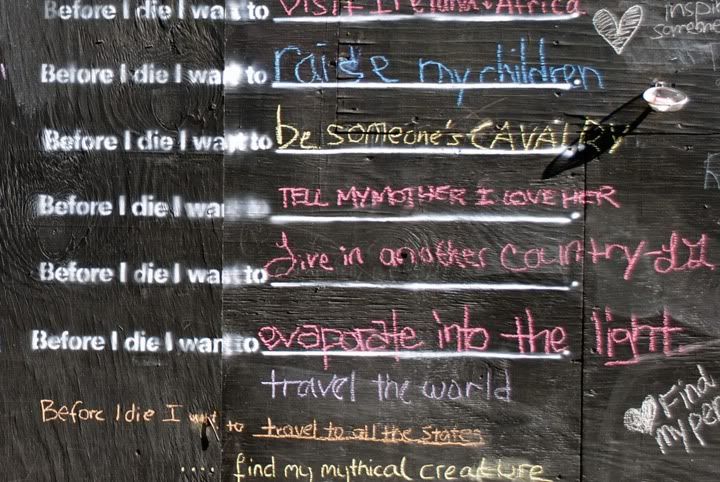 Before I die I want to visit Ireland + Africa
Before I die I want to raise my children
Before I die I want to be someone's CAVALRY
Before I die I want to TELL MY MOTHER I LOVE HER
Before I die I want to live in another country
Before I die I want to evaporate into the light
travel the world
Before I die I want to travel to all the states
.... find my mythical creature
someone
Find
my